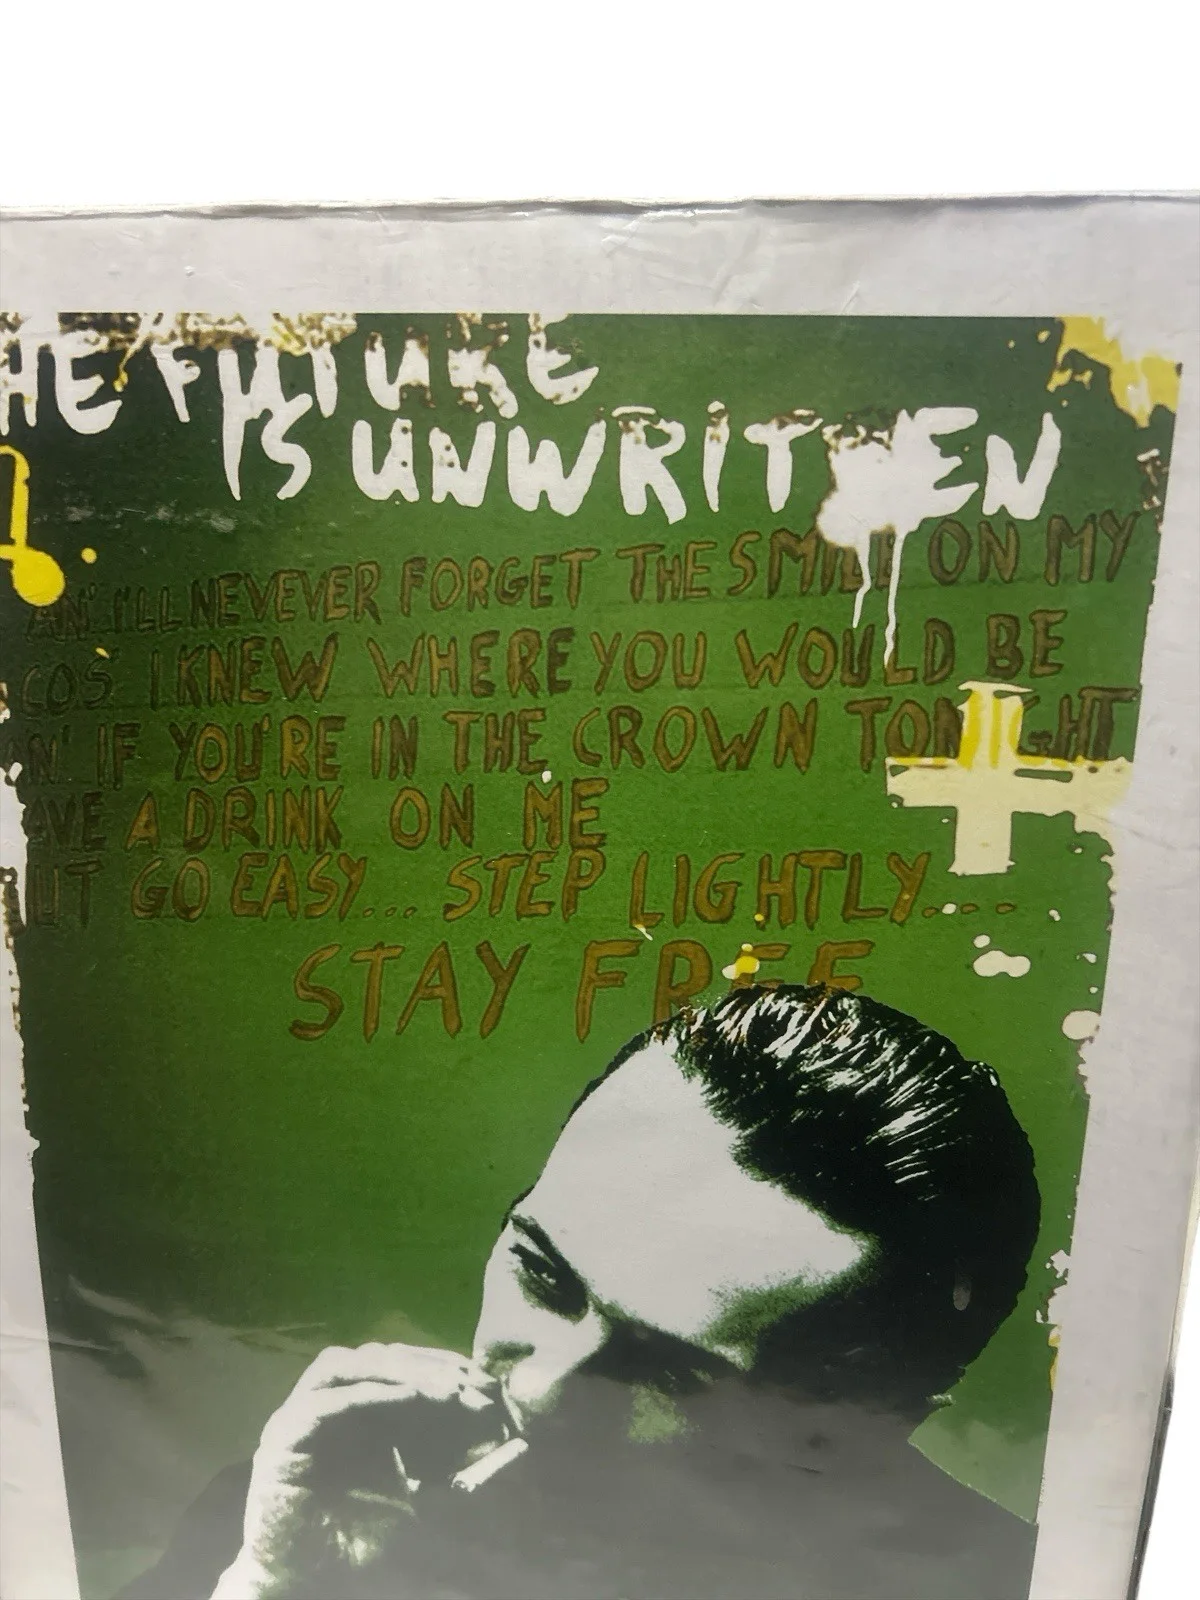 HE FUTURE
IS UNWRITTEN
AN' I'LL NEVEVER FORGET THE SMILE ON MY
COS' I KNEW WHERE YOU WOULD BE
N' IF YOU'RE IN THE CROWN TONIGHT
AVE A DRINK ON ME
UT GO EASY... STEP LIGHTLY....
STAY FREE